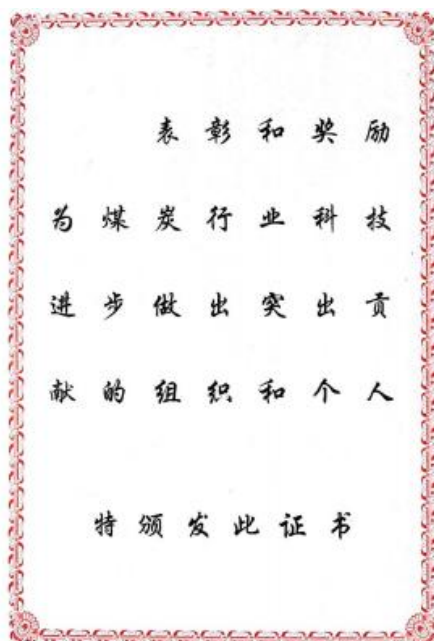 表彰和奖励
为煤炭行业科技
进步做出突出贡
献的组织和个人
特颁发此证书